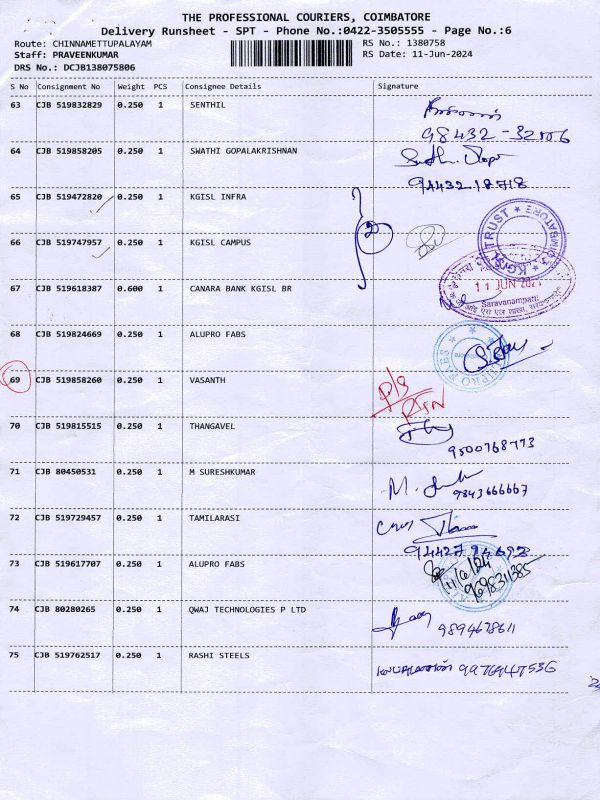 THE PROFESSIONAL COURIERS, COIMBATORE
Delivery Runsheet - SPT - Phone No.:0422-3505555 - Page No.:6
Route: CHINNAMETTUPALAYAM RS No.: 1380758
Staff: PRAVEENKUMAR RS Date: 11-Jun-2024
DRS No.: DCJB138075806
S No Consignment No Weight PCS Consignee Details Signature
63 CJB 519832829 0.250 1 SENTHIL
98432-32506
64 CJB 519858205 0.250 1 SWATHI GOPALAKRISHNAN
94432 18718
65 CJB 519472820 0.250 1 KGISL INFRA
2
66 CJB 519747957 0.250 1 KGISL CAMPUS
KGISL TRUST * COIMBATORE *
67 CJB 519618387 0.600 1 CANARA BANK KGISL BR
11 JUN 2024
Saravanampatti
68 CJB 519824669 0.250 1 ALUPRO FABS
69 CJB 519858260 0.250 1 VASANTH
P/S
RTN
70 CJB 519815515 0.250 1 THANGAVEL
9500768773
71 CJB 80450531 0.250 1 M SURESHKUMAR
9843666667
72 CJB 519729457 0.250 1 TAMILARASI
73 CJB 519617707 0.250 1 ALUPRO FABS
11/6/24
9698311385
74 CJB 80280265 0.250 1 QWAJ TECHNOLOGIES P LTD
9894678611
75 CJB 519762517 0.250 1 RASHI STEELS